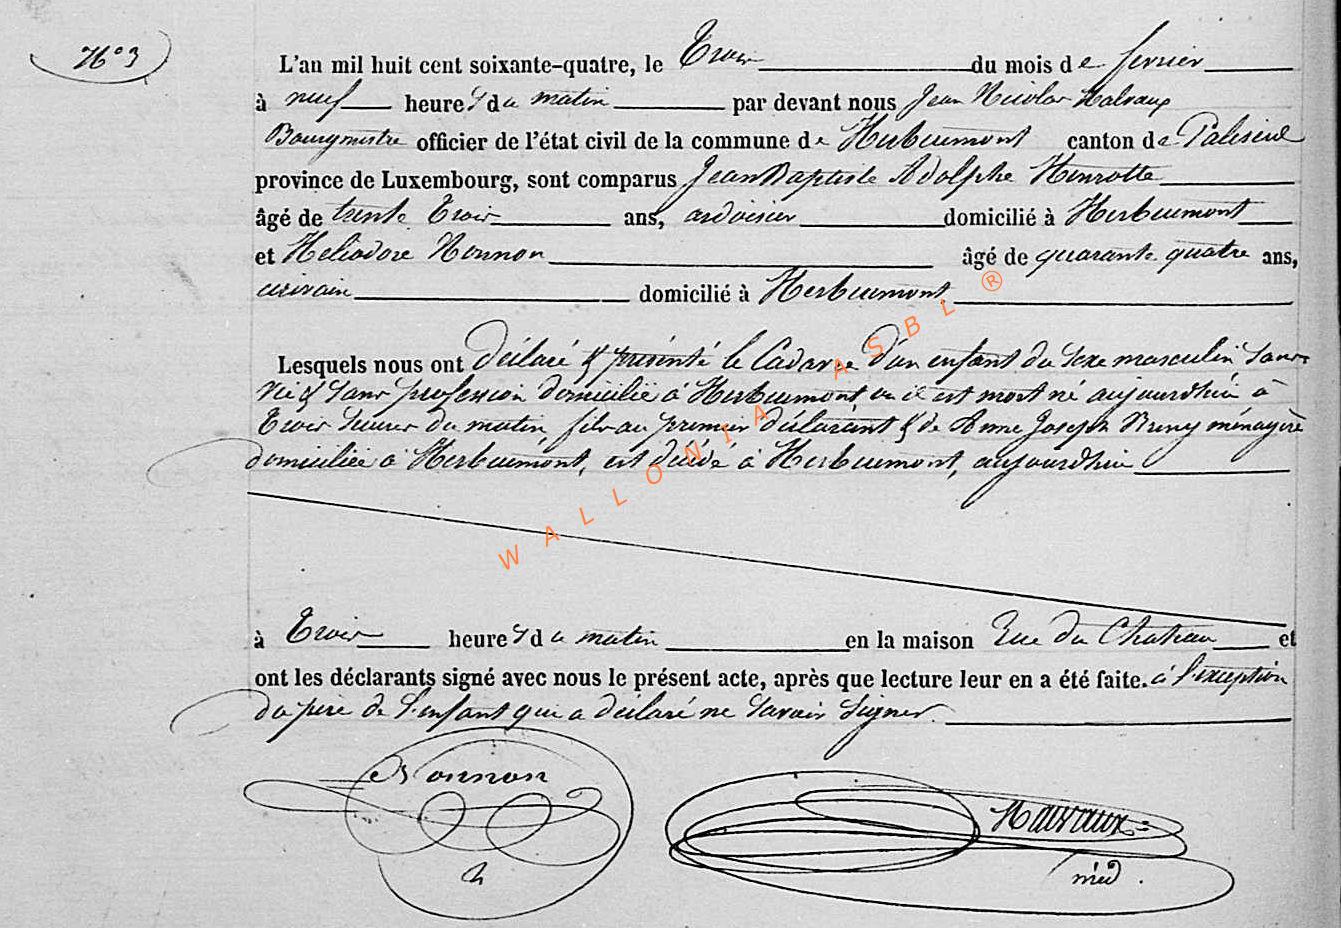 N° 3
L'an mil huit cent soixante-quatre, le Trois du mois de fevrier
à neuf heures du matin par devant nous Jean Nicolas Halvaux
Bourgmestre officier de l'état civil de la commune de Herbeumont canton de Paliseul
province de Luxembourg, sont comparus Jean Baptiste Adolphe Henrotte
âgé de trente Trois ans, ardoisier domicilié à Herbeumont
et Heliodore Nonnon âgé de quarante quatre ans,
ecrivain domicilié à Herbeumont
Lesquels nous ont déclaré & présenté le Cadavre d'un enfant du sexe masculin sans
vie & sans profession domicilié à Herbeumont ou il est mort né aujourdhui à
Trois heures du matin, fils au premier déclarant & de Anne Joseph ménagère
domiciliée à Herbeumont, est décédé à Herbeumont, aujourdhui
à Trois heures du matin en la maison Rue du Chateau et
ont les déclarants signé avec nous le présent acte, après que lecture leur en a été faite. à l'exception
du père de l'enfant qui a déclaré ne savoir signer.
Nonnon
Halvaux
WALLONIA ASBL ®